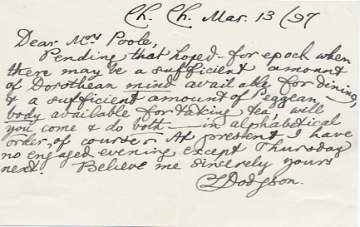 Ch. Ch. Mar. 13/97
Dear Mrs Poole,
Pending that hoped-for epoch when
there may be a sufficient amount
of Dorothean mind available for dining,
& a sufficient amount of Peggean
body available for taking tea, will
you come & do both — in alphabetical
order, of course. At present I have
no engaged evening except Thursday
next. Believe me sincerely yours
CLDodgson.